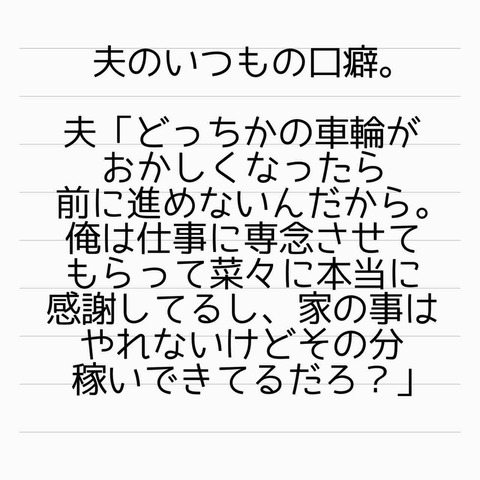 夫のいつもの口癖。
夫「どっちかの車輪が
おかしくなったら
前に進めないんだから。
俺は仕事に専念させて
もらって菜々に本当に
感謝してるし、家の事は
やれないけどその分
稼いできてるだろ？」